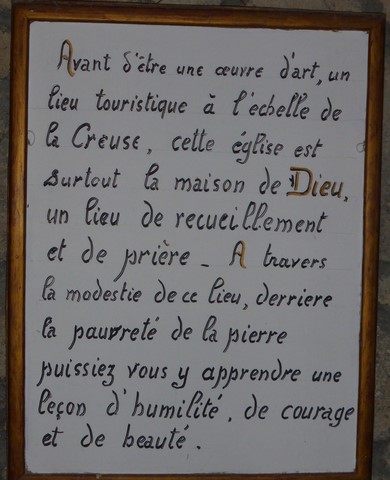 Avant d'être une œuvre d'art, un
lieu touristique à l'echelle de
la Creuse, cette église est
surtout la maison de Dieu,
un lieu de recueillement
et de prière - A travers
la modestie de ce lieu, derriere
la pauvreté de la pierre
puissiez vous y apprendre une
leçon d'humilité, de courage
et de beauté.